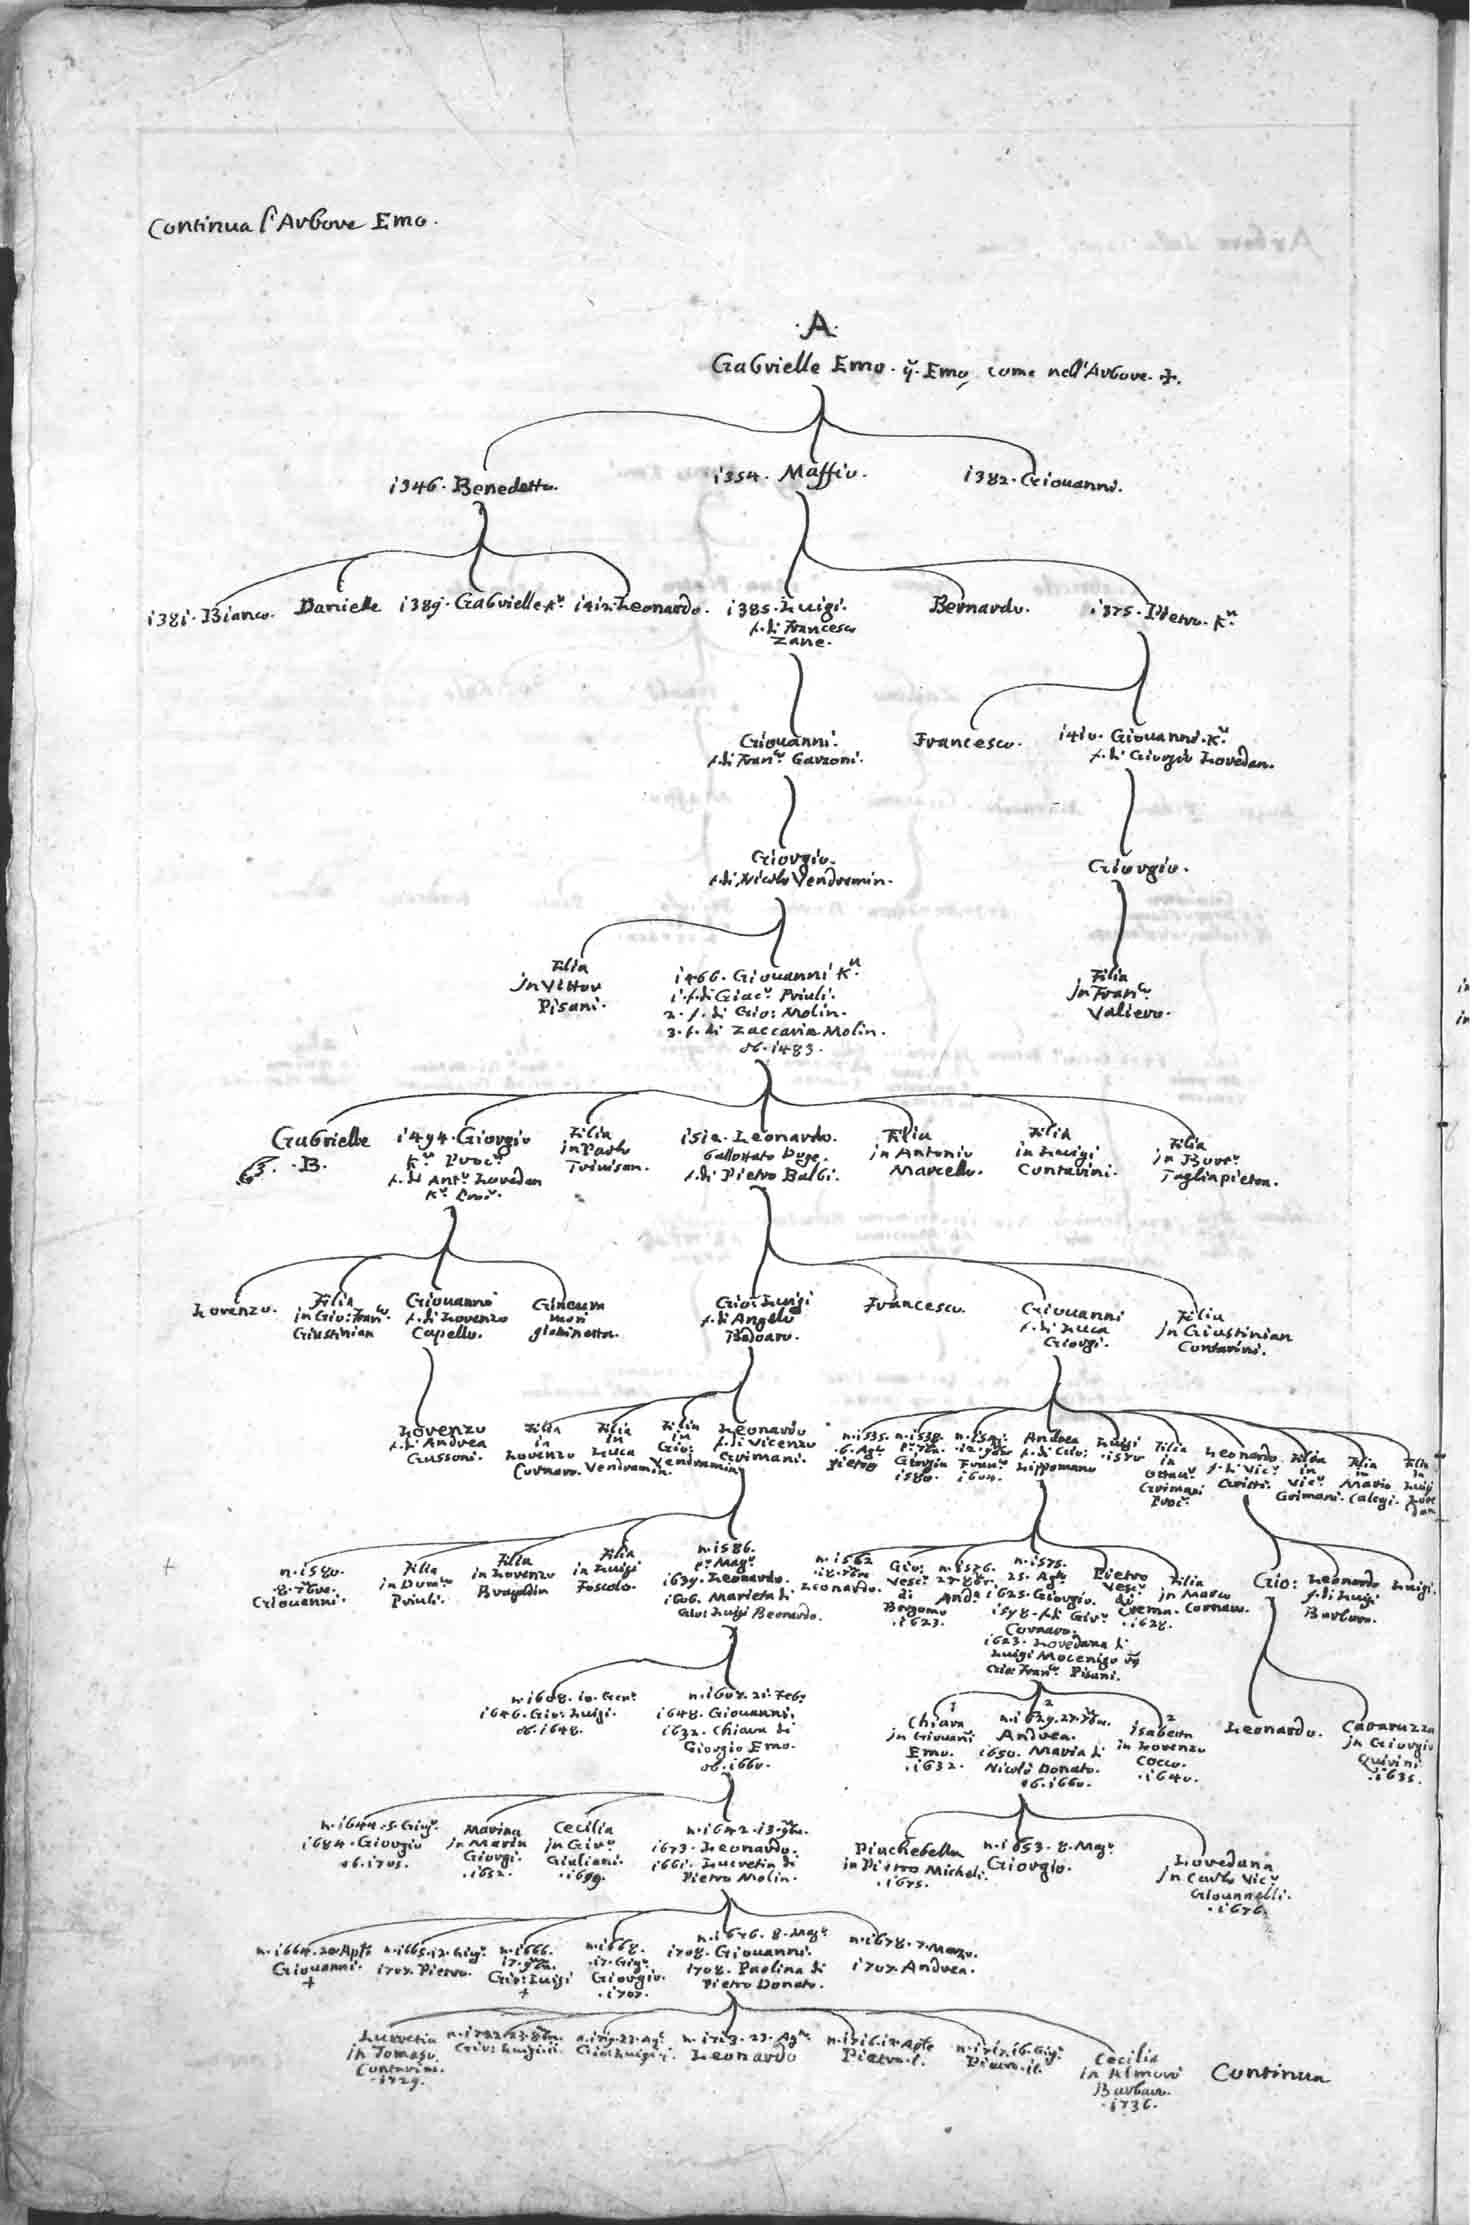 Continua l'Arbore Emo.
A
Gabrielle Emo. q. Emo, come nell'Arbore. ✠.
1346. Benedetto.
1354. Maffio.
1382. Giouanni.
1381. Bianco.
Danielle
1389. Gabrielle Kr.
1412. Leonardo.
1385. Luigi.
f. di Francesco
Zane.
Bernardo.
1375. Pietro. Kr.
Giouanni.
f. di Franco Garzoni.
Francesco.
1410. Giouanni. Kr.
f. di Giorgio Loredan.
Giorgio.
f. di Nicolo Vendramin.
Giorgio.
Filia
in Vittor
Pisani.
1466. Giouanni Kr.
1. f. di Giaco. Priuli.
2. f. di Gio: Molin.
3. f. di Zaccaria Molin.
ob. 1483.
Filia
in Franco.
Valiero.
Gabrielle
B.
1494. Giorgio
Kr. Procr.
f. di Anto. Loredan
Kr. Procr.
Filia
in Paolo
Triuisan.
1512. Leonardo.
ballottato Doge.
f. di Pietro Balbi.
Filia
in Antonio
Marcello.
Filia
in Luigi
Contarini.
Filia
in Borto.
Tagliapietra.
Lorenzo.
Filia
in Gio: Franco
Giustinian
Giouanni
f. di Lorenzo
Capello.
Giacum
mori
Gio: Luigi
f. di Angelo
Badoaro.
Francesco.
Giouanni
f. di Luca
Giorgi.
Filia
in Giustinian
Contarini.
Lorenzo
f. di Andrea
Gussoni.
Filia
in
Lorenzo
Cornaro.
Filia
in
Luca
Vendramin.
Filia
in
Gio:
Vendramin
Leonardo
f. di Vicenzo
Grimani.
n. 1535.
6. Ago.
Pietro
n. 1538.
Giorgio
1580.
Franco.
1604.
Andrea
f. di Gio:
Lippomano
Luigi
1570
Filia
in
Ottauo.
Grimani
Procr.
Leonardo
f. di Vico.
Gritti.
Filia
in
Vico.
Grimani.
Filia
in
Mario
Calergi.
Filia
in
Luigi
Lore
dan
n. 1580.
8. 7bre.
Giouanni.
Filia
in Domo.
Priuli.
Filia
in Lorenzo
Bragadin
Filia
in Luigi
Foscolo.
n. 1586.
po. Mago.
1639. Leonardo.
1606. Marieta di
Gio: Luigi Bernardo.
n. 1562
18. 7bre
Leonardo.
Gio:
Vesco.
di
Bergomo
1623.
n. 1576.
27. 8br.
Anda.
n. 1575.
25. Ago.
1625. Giorgio.
1598. f. di Gio.
Cornaro.
1623. Loredana di
Luigi Mocenigo
Gio: Franco. Pisani.
Pietro
Vesco.
di
Crema.
1628.
Filia
in Marco
Cornaro.
Gio:
Leonardo
f. di Luigi
Barbaro.
Luigi.
n. 1608. 10. Geno.
1646. Gio: Luigi.
ob. 1648.
n. 1607. 21. Febo.
1648. Giouanni.
1632. Chiara di
Giorgio Emo.
ob. 1660.
1
Chiara
in Giouani
Emo.
1632.
2
n. 1629. 27. 7bre.
Andrea.
1650. Maria di
Nicolò Donato.
ob. 1660.
2
Isabetta
in Lorenzo
Cocco.
1640.
Leonardo.
Cataruzza
in Giorgio
Quirini
1635.
n. 1644. 5. Giugo.
1684. Giorgio
ob. 1705.
Marina
in Marin
Giorgi.
1652.
Cecilia
in Gio.
Giuliani.
1699.
n. 1642. 13. 9bre.
1673. Leonardo.
1661. Lucretia di
Pietro Molin.
Piuchebella
in Pietro Micheli.
1675.
n. 1653. 8. Mago.
Giorgio.
Loredana
in Carlo Vico.
Giouannelli.
1676.
n. 1664. 20. Aple
Giouanni.
+
n. 1665. 12. Giugo.
1707. Pietro.
n. 1666.
17. 9bre.
Gio: Luigi
+
n. 1668.
17. Giugo.
Giorgio.
1707.
n. 1676. 8. Mago.
1708. Giouanni.
1708. Paolina di
Pietro Donato.
n. 1678. 7. Marzo.
1707. Andrea.
Lucretia
in Tomaso
Contarini.
1729.
n. 1722. 23. 8bre.
Gio: Luigi. ii.
n. 1719. 23. Ago.
Gio: Luigi. i.
n. 1713. 27. Ago.
Leonardo
n. 1716. 12. Aple
Pietro. i.
n. 1717. 16. Giugo.
Pietro. ii.
Cecilia
in Almorò
Barbaro.
1736.
Continua